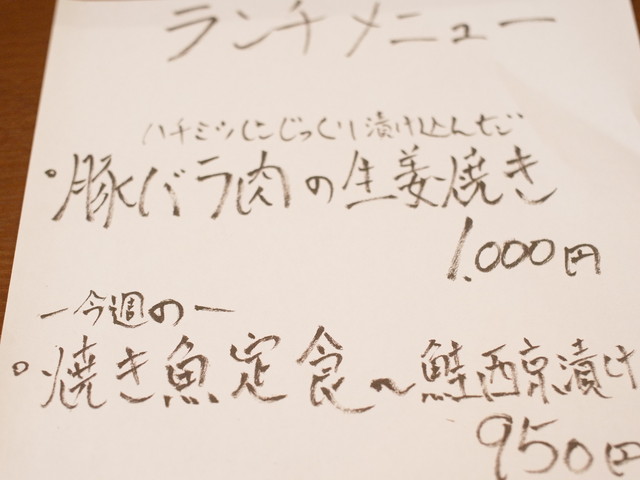 ランチメニュー
ハチミツにじっくり漬け込んだ
豚バラ肉の生姜焼き
1.000円
ー今週のー
焼き魚定食〜鮭西京漬け
950円